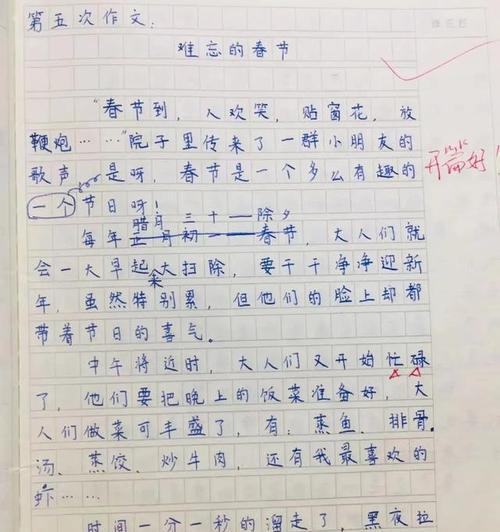 第五次作文:
难忘的春节
“春节到，人欢笑，贴窗花，放
鞭炮……”院子里传来了一群小朋友的
歌声。是呀，春节是一个多么有趣的
开篇好!
一个节日呀!
腊月三十——除夕
每年正月初一——春节，大人们就
会一大早起来大扫除，要干干净净迎新
年，虽然特别累，但他们的脸上却都
带着节日的喜气。
中午将近时，大人们又开始忙碌
了，他们要把晚上的饭菜准备好，大
人们做菜可丰盛了，有：蒸鱼、排骨
汤、蒸饺、炒牛肉，还有我最喜欢的
虾……
时间一分一秒的溜走了，黑夜拉